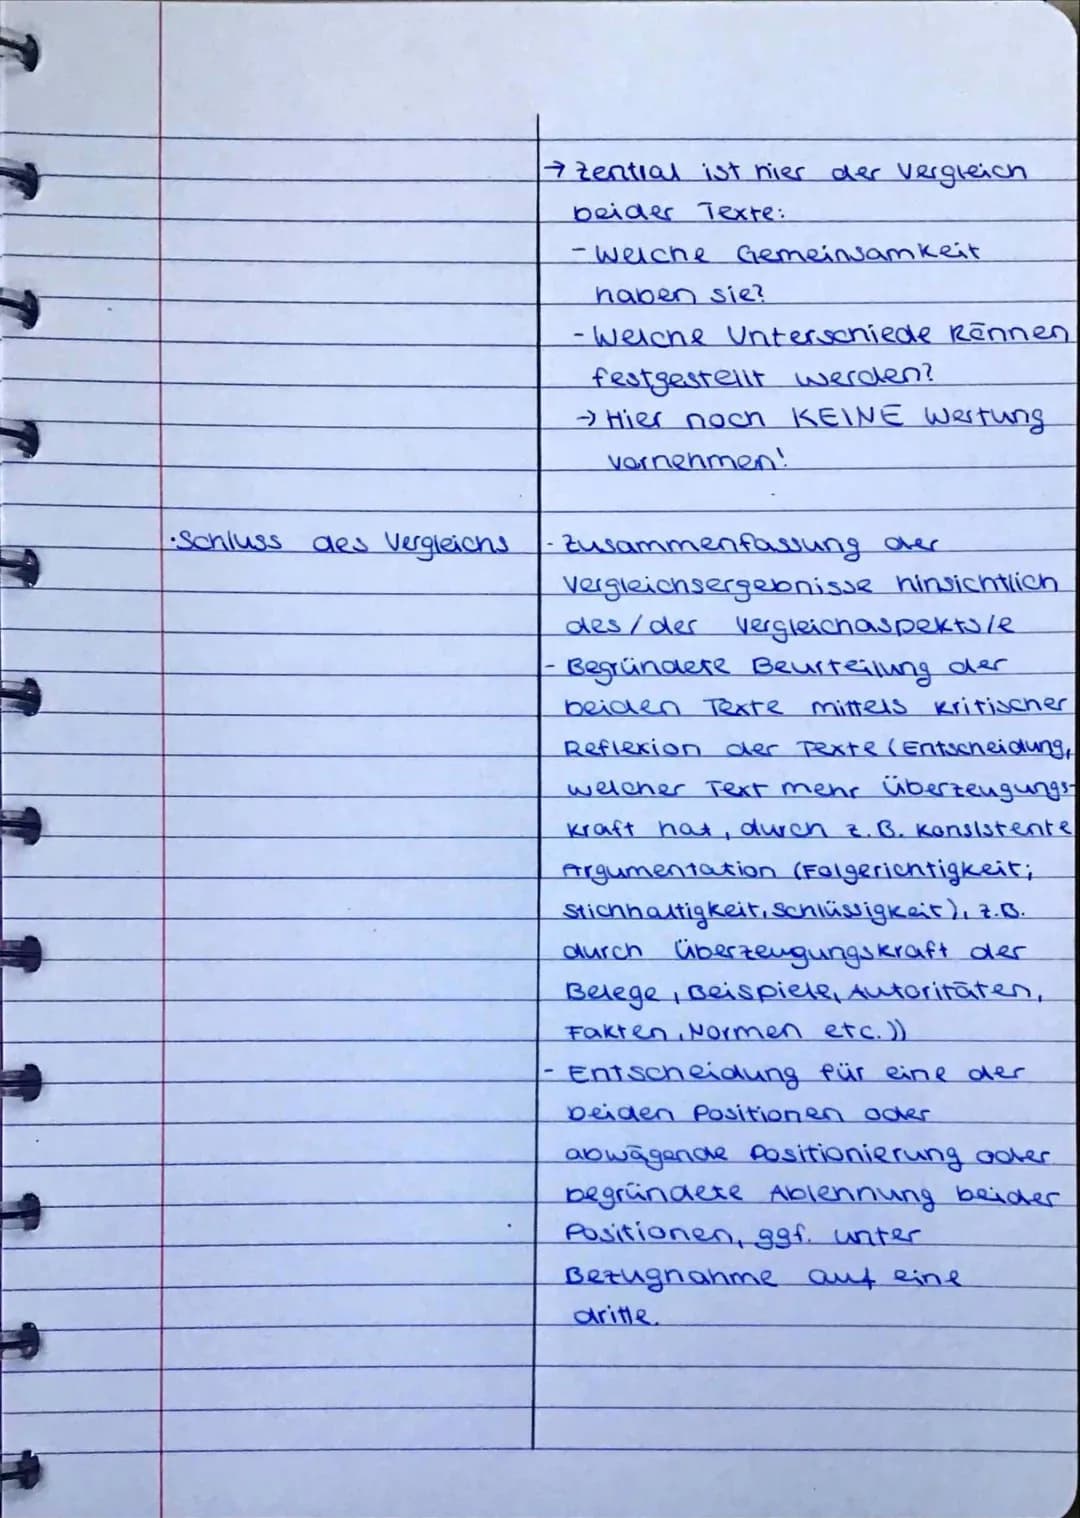 → Zentral ist hier der Vergleich
beider Texte:
- Welche Gemeinsamkeit
haben sie?
- Welche Unterschiede können
festgestellt werden?
→ Hier noch KEINE Wertung
vornehmen!
·Schluss des Vergleichs
- Zusammenfassung der
Vergleichsergebnisse hinsichtlich
des/der Vergleichaspekts/e
- Begründete Beurteilung der
beiden Texte mittels kritischer
Reflexion der Texte (Entscheidung,
welcher Text mehr Überzeugungs-
kraft hat, durch z.B. konsistente
Argumentation (Folgerichtigkeit;
Stichhaltigkeit, Schlüssigkeit), z.B.
durch Überzeugungskraft der
Belege, Beispiele, Autoritäten,
Fakten, Normen etc.))
- Entscheidung für eine der
beiden Positionen oder
abwägende Positionierung oder
begründete Ablehnung beider
Positionen, ggf. unter
Bezugnahme auf eine
dritte.